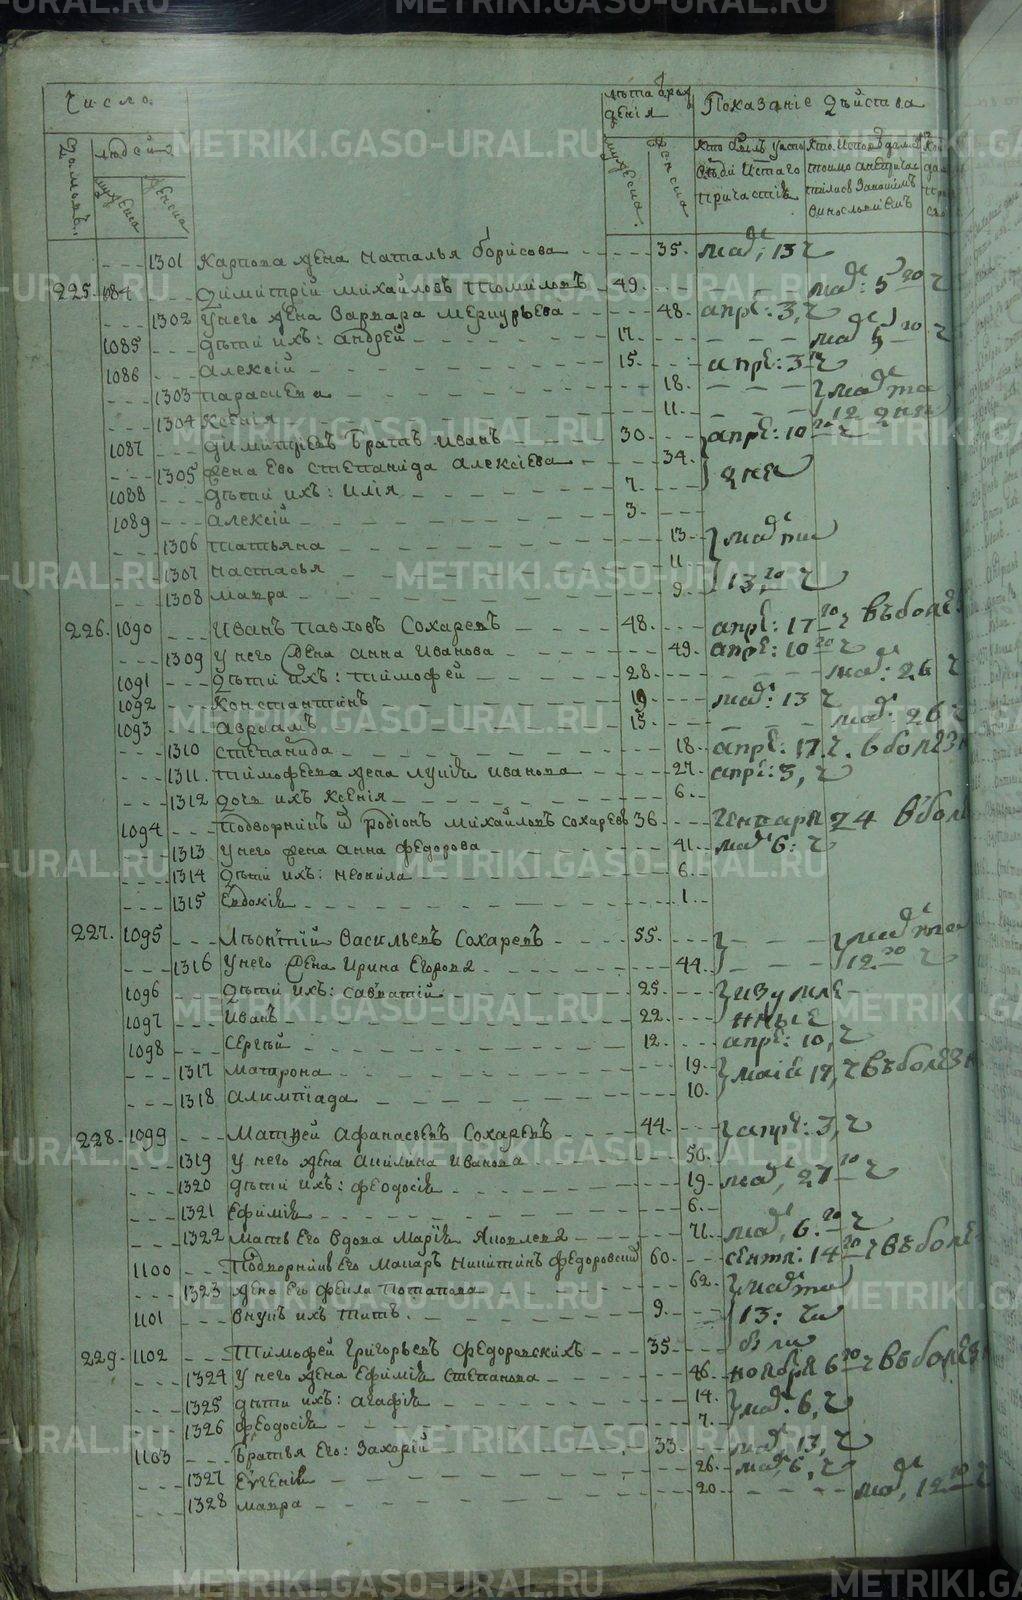 Число.
лѣта ѡрожденія
Показаніе дѣйства
людей
мужеска
женска
--- 1301 Карпова жена Наталья Борисова - - - - 35. маі, 13 ч
225. 1084 --- Димитрій Михайловъ Томиловъ - 49. маі: 5 го ч
--- 1302 У него жена Варвара Меркурьева - - - - 48. апре: 3, ч
1085 --- дѣти ихъ: Андрей - - - 17. ч
1086 --- Алексій - - - 15. апре: 3 ч
--- 1303 Параскева - - - 18.
--- 1304 Ксенія - - - 11. 12 дня
1087 --- Димитріевъ братъ Иванъ - - - 30. апре: 10 го ч
--- 1305 жена Его Степанида Алексіева - - - 34.
1088 --- дѣти ихъ: Илія - - - 7.
1089 --- Алексій - - - 3.
--- 1306 Татьяна - - - 13.
--- 1307 Настасья - - - 11. 13, го ч
--- 1308 Мавра - - - 9.
226. 1090 --- Иванъ Павловъ Сохаревъ - - - 48. апре: 17 го ч въ болез
--- 1309 У него жена Анна Иванова - - - 49. апре: 10 го ч
1091 --- дѣти ихъ: Тимофей - - - 28. маі: 26 ч
1092 --- Константинъ - - - 19 маі: 13 ч
1093 --- Авраамъ - - - 15. маі: 26 ч
--- 1310 Степанида - - - 18. апре: 17 ч. в болезн
--- 1311. Тимофеева жена Лукія Иванова - - - 27. апре: 3, ч
--- 1312 дочь ихъ Ксенія - - - 6.
1094 --- Подворникъ Родіонъ Михайловъ Сохаревъ 36 Генваря 24 в бол
--- 1313 У него жена Анна Федорова - - - 41. маі 6: ч
--- 1314 дѣти ихъ: Неонила - - - 6.
--- 1315 Евдокія - - - 1.
227. 1095 --- Лѣонтій Васильевъ Сохаревъ - - - 55.
--- 1316 У него жена Ирина Егорова - - - 44. 12 го ч
1096 --- дѣти ихъ: Савватій - - - 25.
1097 --- Иванъ - - - 22.
1098 --- Сергѣй - - - 12. апре: 10, ч
--- 1317 Матрона - - - 19.
--- 1318 Алимпіада - - - 10. маія 17, ч въ болезн
228. 1099 --- Матвей Афанасьевъ Сохаревъ - - - 44. апре: 3, ч
--- 1319 У него жена Акилина Иванова - - - 50.
--- 1320 дѣти ихъ: Феодосія - - - 19. маі, 27 го ч
--- 1321 Ефимія - - - 6.
--- 1322 Мать Его Вдова Марія Яковлева - - - 71. маі, 6. го ч
1100 --- Подворникъ Его Макаръ Никитинъ Федоровскій 60. сентя: 14 го ч въ боле
--- 1323 жена Его Фекла Потапова - - - 62.
1101 --- Внукъ ихъ Титъ. - - - 9. 13: ч
229. 1102 --- Тимофей Григорьевъ Федоровскихъ - - - 35.
--- 1324 У него жена Ефимія Степанова - - - 46. ноября 6 го ч въ болез
--- 1325 дѣти ихъ: Агафія - - - 14. маі. 6, ч
--- 1326 Феодосія - - - 7.
1103 --- Братья Его: Захарій - - - 33. маі, 13, ч
--- 1327 Евгенія - - - 26. маі, 6, ч
--- 1328 Мавра - - - 20. маі, 12 го ч
METRIKI.GASO-URAL.RU